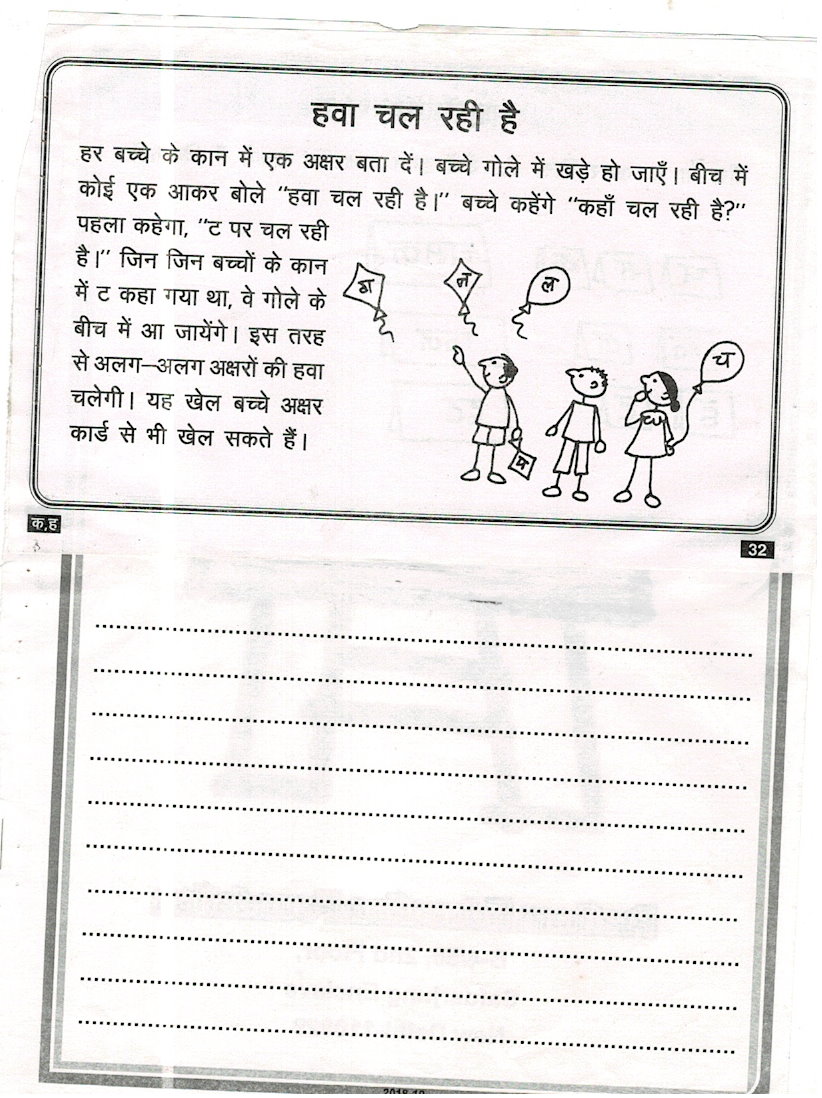 हवा चल रही है
हर बच्चे के कान में एक अक्षर बता दें। बच्चे गोले में खड़े हो जाएँ। बीच में
कोई एक आकर बोले "हवा चल रही है।" बच्चे कहेंगे "कहाँ चल रही है?"
पहला कहेगा, "ट पर चल रही
है।" जिन जिन बच्चों के कान
में ट कहा गया था, वे गोले के
बीच में आ जायेंगे। इस तरह
से अलग–अलग अक्षरों की हवा
चलेगी। यह खेल बच्चे अक्षर
कार्ड से भी खेल सकते हैं।
ग
न
ल
च
प
क,ह
32
2018-19